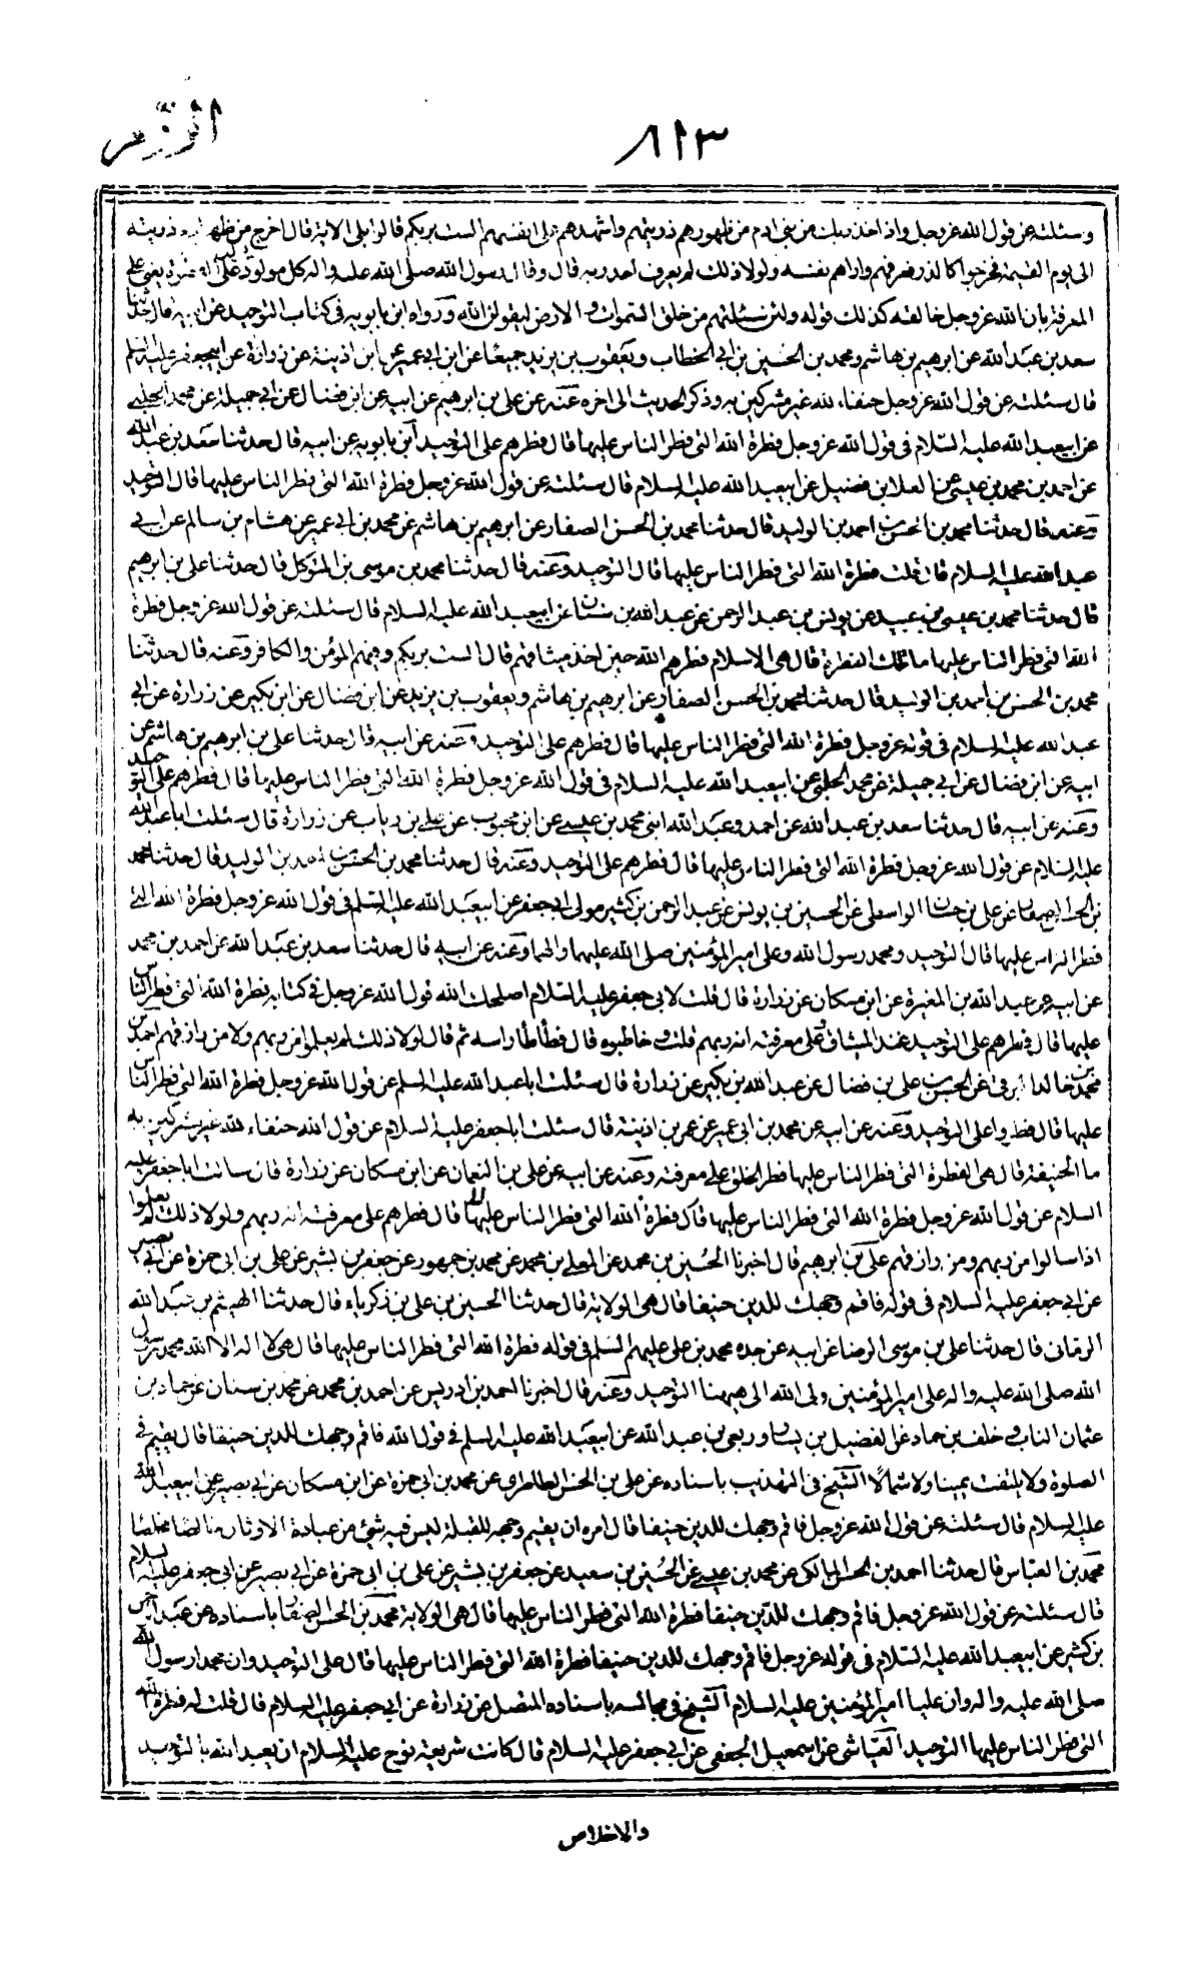 ٨١٣
الروم
وسئلته عن قول الله عز وجل واذ اخذ ربك من بنى ادم من ظهورهم ذريتهم واشهدهم على انفسهم الست بربكم قالوا بلى الاية قال اخرج من ظهر ذريته
الى يوم القيمة فخرجوا كالذر فعرفهم واراهم نفسه ولولا ذلك لم يعرف احد ربه قال وقال رسول الله صلى الله عليه واله كل مولود يولد على الفطرة يعنى على
المعرفة بان الله عز وجل خالقه كذلك قوله ولئن سئلتهم من خلق السموات والارض ليقولن الله ورواه ابن بابويه فى كتاب التوحيد عن ابيه قال حدثنا
سعد بن عبد الله عن ابرهيم بن هاشم ومحمد بن الحسين بن ابى الخطاب ويعقوب بن يزيد جميعا عن ابن ابى عمير عن ابن اذينة عن زرارة عن ابيجعفر عليه السلم
قال سئلته عن قول الله عز وجل حنفاء لله غير مشركين به وذكر الحديث الى اخره عنه عن على بن ابرهيم عن ابيه عن ابن فضال عن ابى جميلة عن محمد الحلبى
عن ابيعبد الله عليه السلام فى قول الله عز وجل فطرة الله التى فطر الناس عليها قال فطرهم على التوحيد ابن بابويه عن ابيه قال حدثنا سعد بن عبد الله
عن احمد بن محمد بن عيسى عن العلا بن فضيل عن ابيعبد الله عليه السلام قال سئلته عن قول الله عز وجل فطرة الله التى فطر الناس عليها قال التوحيد
وعنه قال حدثنا محمد بن الحسن بن احمد بن الوليد قال حدثنا محمد بن الحسن الصفار عن ابرهيم بن هاشم عن محمد بن ابى عمير عن هشام بن سالم عن ابى
عبد الله عليه السلام قال قلت فطرة الله التى فطر الناس عليها قال التوحيد وعنه قال حدثنا محمد بن موسى بن المتوكل قال حدثنا على بن ابرهيم
قال حدثنا محمد بن عيسى بن عبيد عن يونس بن عبد الرحمن عن عبد الله بن سنان عن ابيعبد الله عليه السلام قال سئلته عن قول الله عز وجل فطرة
الله التى فطر الناس عليها ما تلك الفطرة قال هى الاسلام فطرهم الله حين اخذ ميثاقهم قال الست بربكم وفيهم المؤمن والكافر وعنه قال حدثنا
محمد بن الحسن بن احمد بن الوليد قال حدثنا محمد بن الحسن الصفار عن ابرهيم بن هاشم ويعقوب بن يزيد عن ابن فضال عن ابن بكير عن زرارة عن ابى
عبد الله عليه السلام فى قوله عز وجل فطرة الله التى فطر الناس عليها قال فطرهم على التوحيد وعنه عن ابيه قال حدثنا على بن ابرهيم بن هاشم عن
ابيه عن ابن فضال عن ابى جميلة عن محمد الحلبى عن ابيعبد الله عليه السلام فى قول الله عز وجل فطرة الله التى فطر الناس عليها قال فطرهم على التوحيد
وعنه عن ابيه قال حدثنا سعد بن عبد الله عن احمد وعبد الله ابنى محمد بن عيسى عن ابن محبوب عن على بن رياب عن زرارة قال سئلت ابا عبد الله
عليه السلام عن قول الله عز وجل فطرة الله التى فطر الناس عليها قال فطرهم على التوحيد وعنه قال حدثنا محمد بن الحسن بن احمد بن الوليد قال حدثنا محمد
بن الحسن الصفار عن على بن حسان الواسطى عن الحسين بن يونس عن عبد الرحمن بن كثير مولى ابيجعفر عن ابيعبد الله عليه السلم فى قول الله عز وجل فطرة الله التى
فطر الناس عليها قال التوحيد ومحمد رسول الله وعلى امير المؤمنين صلى الله عليهما والهما وعنه عن ابيه قال حدثنا سعد بن عبد الله عن احمد بن محمد
عن ابيه عن عبد الله بن المغيرة عن ابن مسكان عن زرارة قال قلت لابى جعفر عليه السلام اصلحك الله قول الله عز وجل فى كتابه فطرة الله التى فطر الناس
عليها قال فطرهم على التوحيد عند الميثاق وعلى معرفته انه ربهم قلت وخاطبوه قال فطأطأ راسه ثم قال لولا ذلك لم يعلموا من ربهم ولا من رازقهم احمد بن
محمد بن خالد البرقى عن الحسن بن على بن فضال عن عبد الله بن بكير عن زرارة قال سئلت ابا عبد الله عليه السلم عن قول الله عز وجل فطرة الله التى فطر الناس
عليها قال فطروا على التوحيد وعنه عن ابيه عن محمد بن ابى عمير عن عمر بن اذينة قال سئلت ابا جعفر عليه السلام عن قول الله حنفاء لله غير مشركين به
ما الحنيفة قال هى الفطرة التى فطر الناس عليها فطر الخلق على معرفته وعنه عن ابيه عن على بن النعمان عن ابن مسكان عن زرارة قال سالت ابا جعفر عليه
السلام عن قول الله عز وجل فطرة الله التى فطر الناس عليها قال فطرة الله التى فطر الناس عليها قال فطرهم على معرفته انه ربهم ولولا ذلك لم يعلموا
اذا سالوا من ربهم ومن رازقهم على بن ابرهيم قال اخبرنا الحسين بن محمد عن المعلى بن محمد عن محمد بن جمهور عن جعفر بن بشير عن على بن ابى حمزة عن ابى بصير
عن ابى جعفر عليه السلام فى قوله فاقم وجهك للدين حنيفا قال هى الولاية قال حدثنا الحسين بن على بن زكرياء قال حدثنا الهيثم بن عبد الله
الرمانى قال حدثنا على بن موسى الرضا عن ابيه عن جده محمد بن على عليهم السلم فى قوله فطرة الله التى فطر الناس عليها قال هى لا اله الا الله محمد رسول
الله صلى الله عليه واله على امير المؤمنين ولى الله الى ههنا التوحيد وعنه قال اخبرنا احمد بن ادريس عن احمد بن محمد عن محمد بن سنان عن حماد بن
عثمان الناب وخلف بن حماد عن الفضيل بن يسار وربعى بن عبد الله عن ابيعبد الله عليه السلم فى قول الله فاقم وجهك للدين حنيفا قال يقيم فى
الصلوة ولا يلتفت يمينا ولا شمالا الشيخ فى التهذيب باسناده عن على بن الحسن الطاطرى عن محمد بن ابى حمزة عن ابن مسكان عن ابى بصير عن ابيعبد الله
عليه السلام قال سئلته عن قول الله عز وجل فاقم وجهك للدين حنيفا قال امره ان يقيم وجهه للقبلة ليس فيه شئ من عبادة الاوثان خالصا مخلصا
محمد بن العباس قال حدثنا احمد بن الحسن المالكى عن محمد بن عيسى عن الحسين بن سعيد عن جعفر بن بشير عن على بن ابى حمزة عن ابى بصير عن ابى جعفر عليه السلام
قال سئلته عن قول الله عز وجل فاقم وجهك للدين حنيفا فطرة الله التى فطر الناس عليها قال هى الولاية محمد بن الحسن الصفار باسناده عن عبد الرحمن
بن كثير عن ابيعبد الله عليه السلام فى قوله عز وجل فاقم وجهك للدين حنيفا فطرة الله التى فطر الناس عليها قال على التوحيد وان محمدا رسول الله
صلى الله عليه واله وان عليا امير المؤمنين عليه السلام الشيخ فى مجالسه باسناده المتصل عن زرارة عن ابى جعفر عليه السلام قال قلت له فطرة الله
التى فطر الناس عليها التوحيد العياشى عن اسمعيل الجعفى عن ابى جعفر عليه السلام قال كانت شريعة نوح عليه السلام ان يعبد الله بالتوحيد
والاخلاص